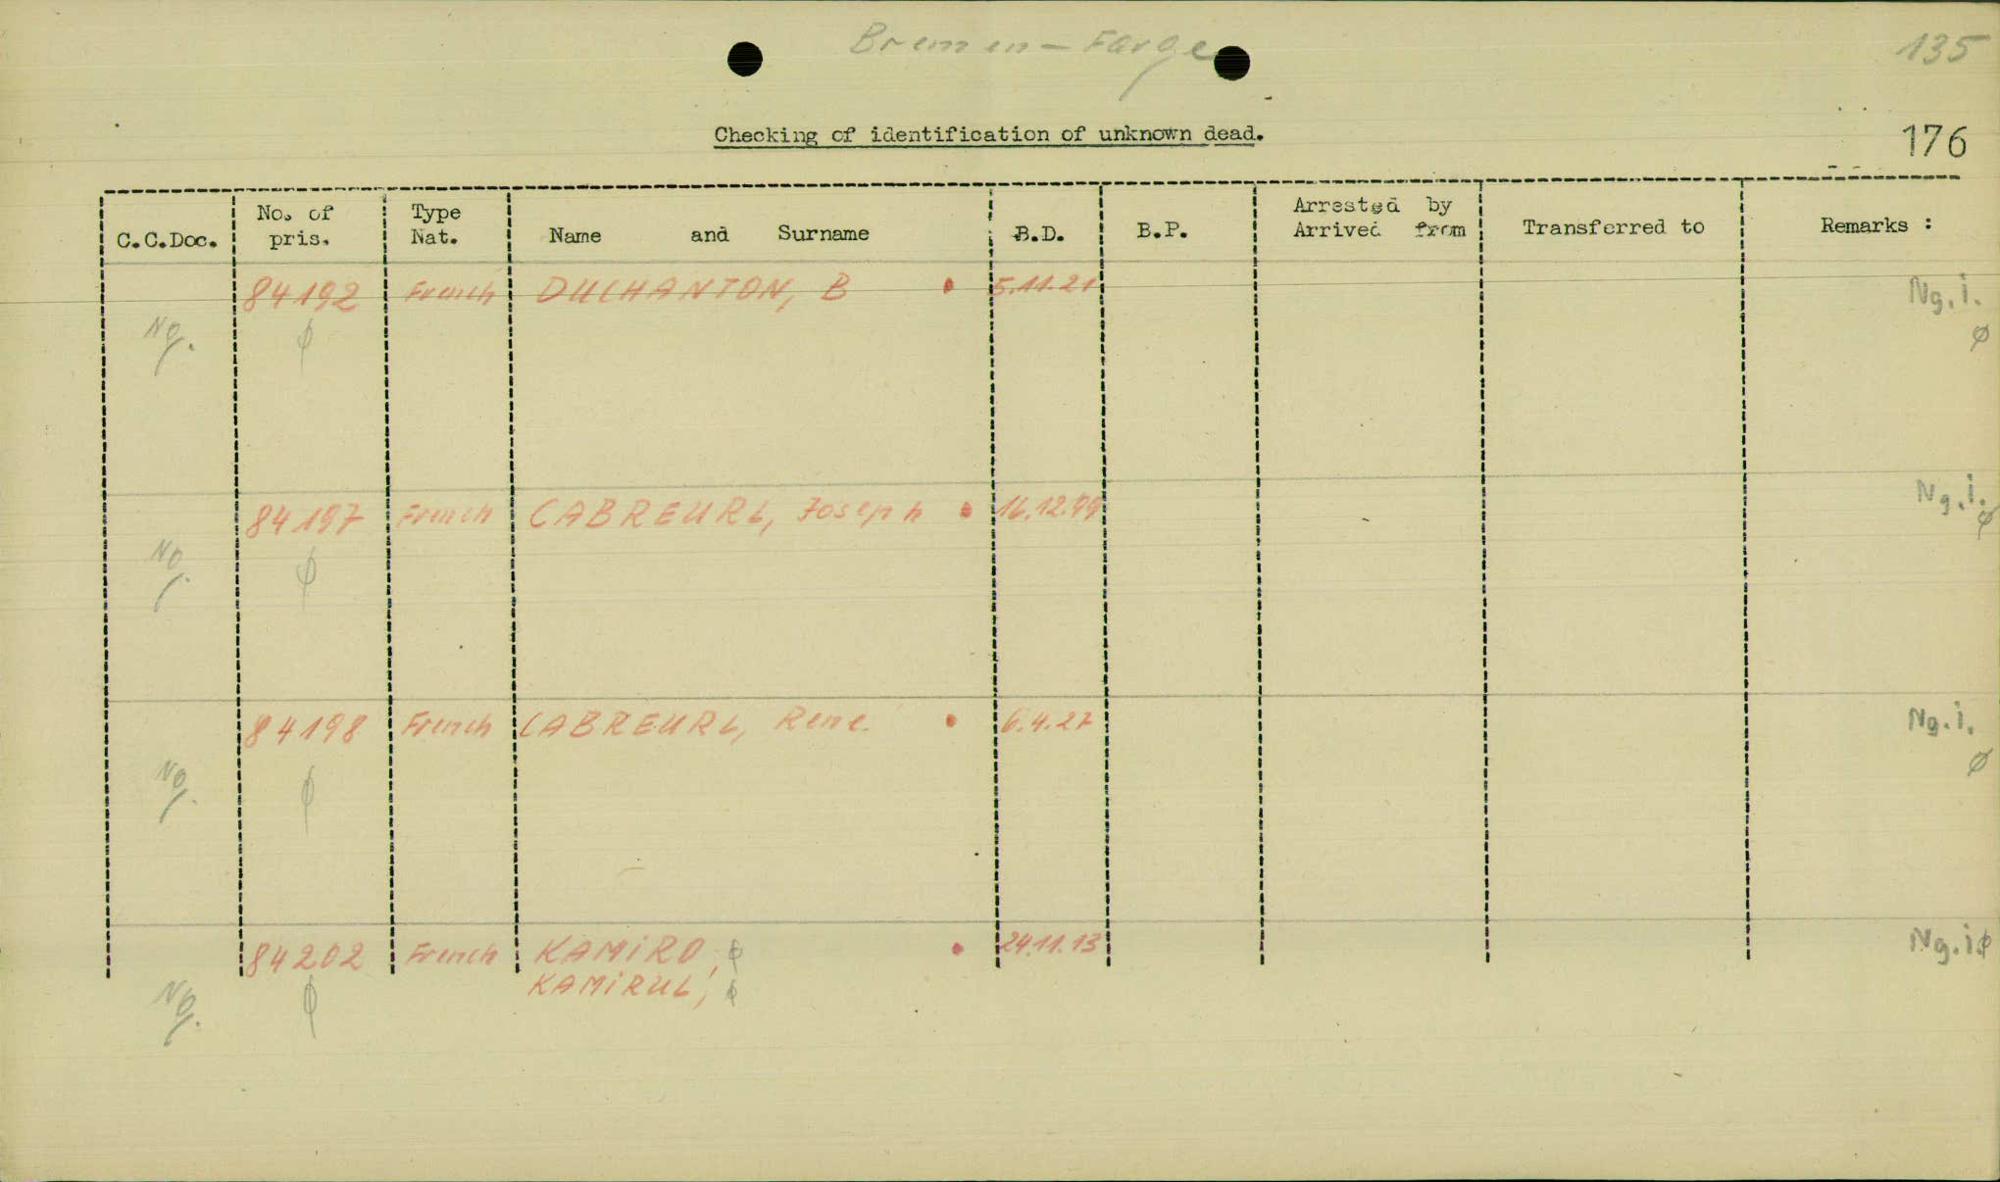 Bremen-Farge
135
Checking of identification of unknown dead.
176
C.C.Doc. No. of pris. Type Nat. Name and Surname B.D. B.P. Arrested by Arrived from Transferred to Remarks :
84192 French DUCHANTON, B 5.11.21 Ng.i.
Ng. ϕ ϕ
84197 French CABREURL, Joseph 16.12.99 Ng.i.
Ng. ϕ ϕ
84198 French CABREURL, Rene. 6.4.27 Ng.i.
Ng. ϕ ϕ
84202 French KAMiRO, ϕ 24.11.13 Ng.i ϕ
KAMiRUL, ϕ
Ng. ϕ